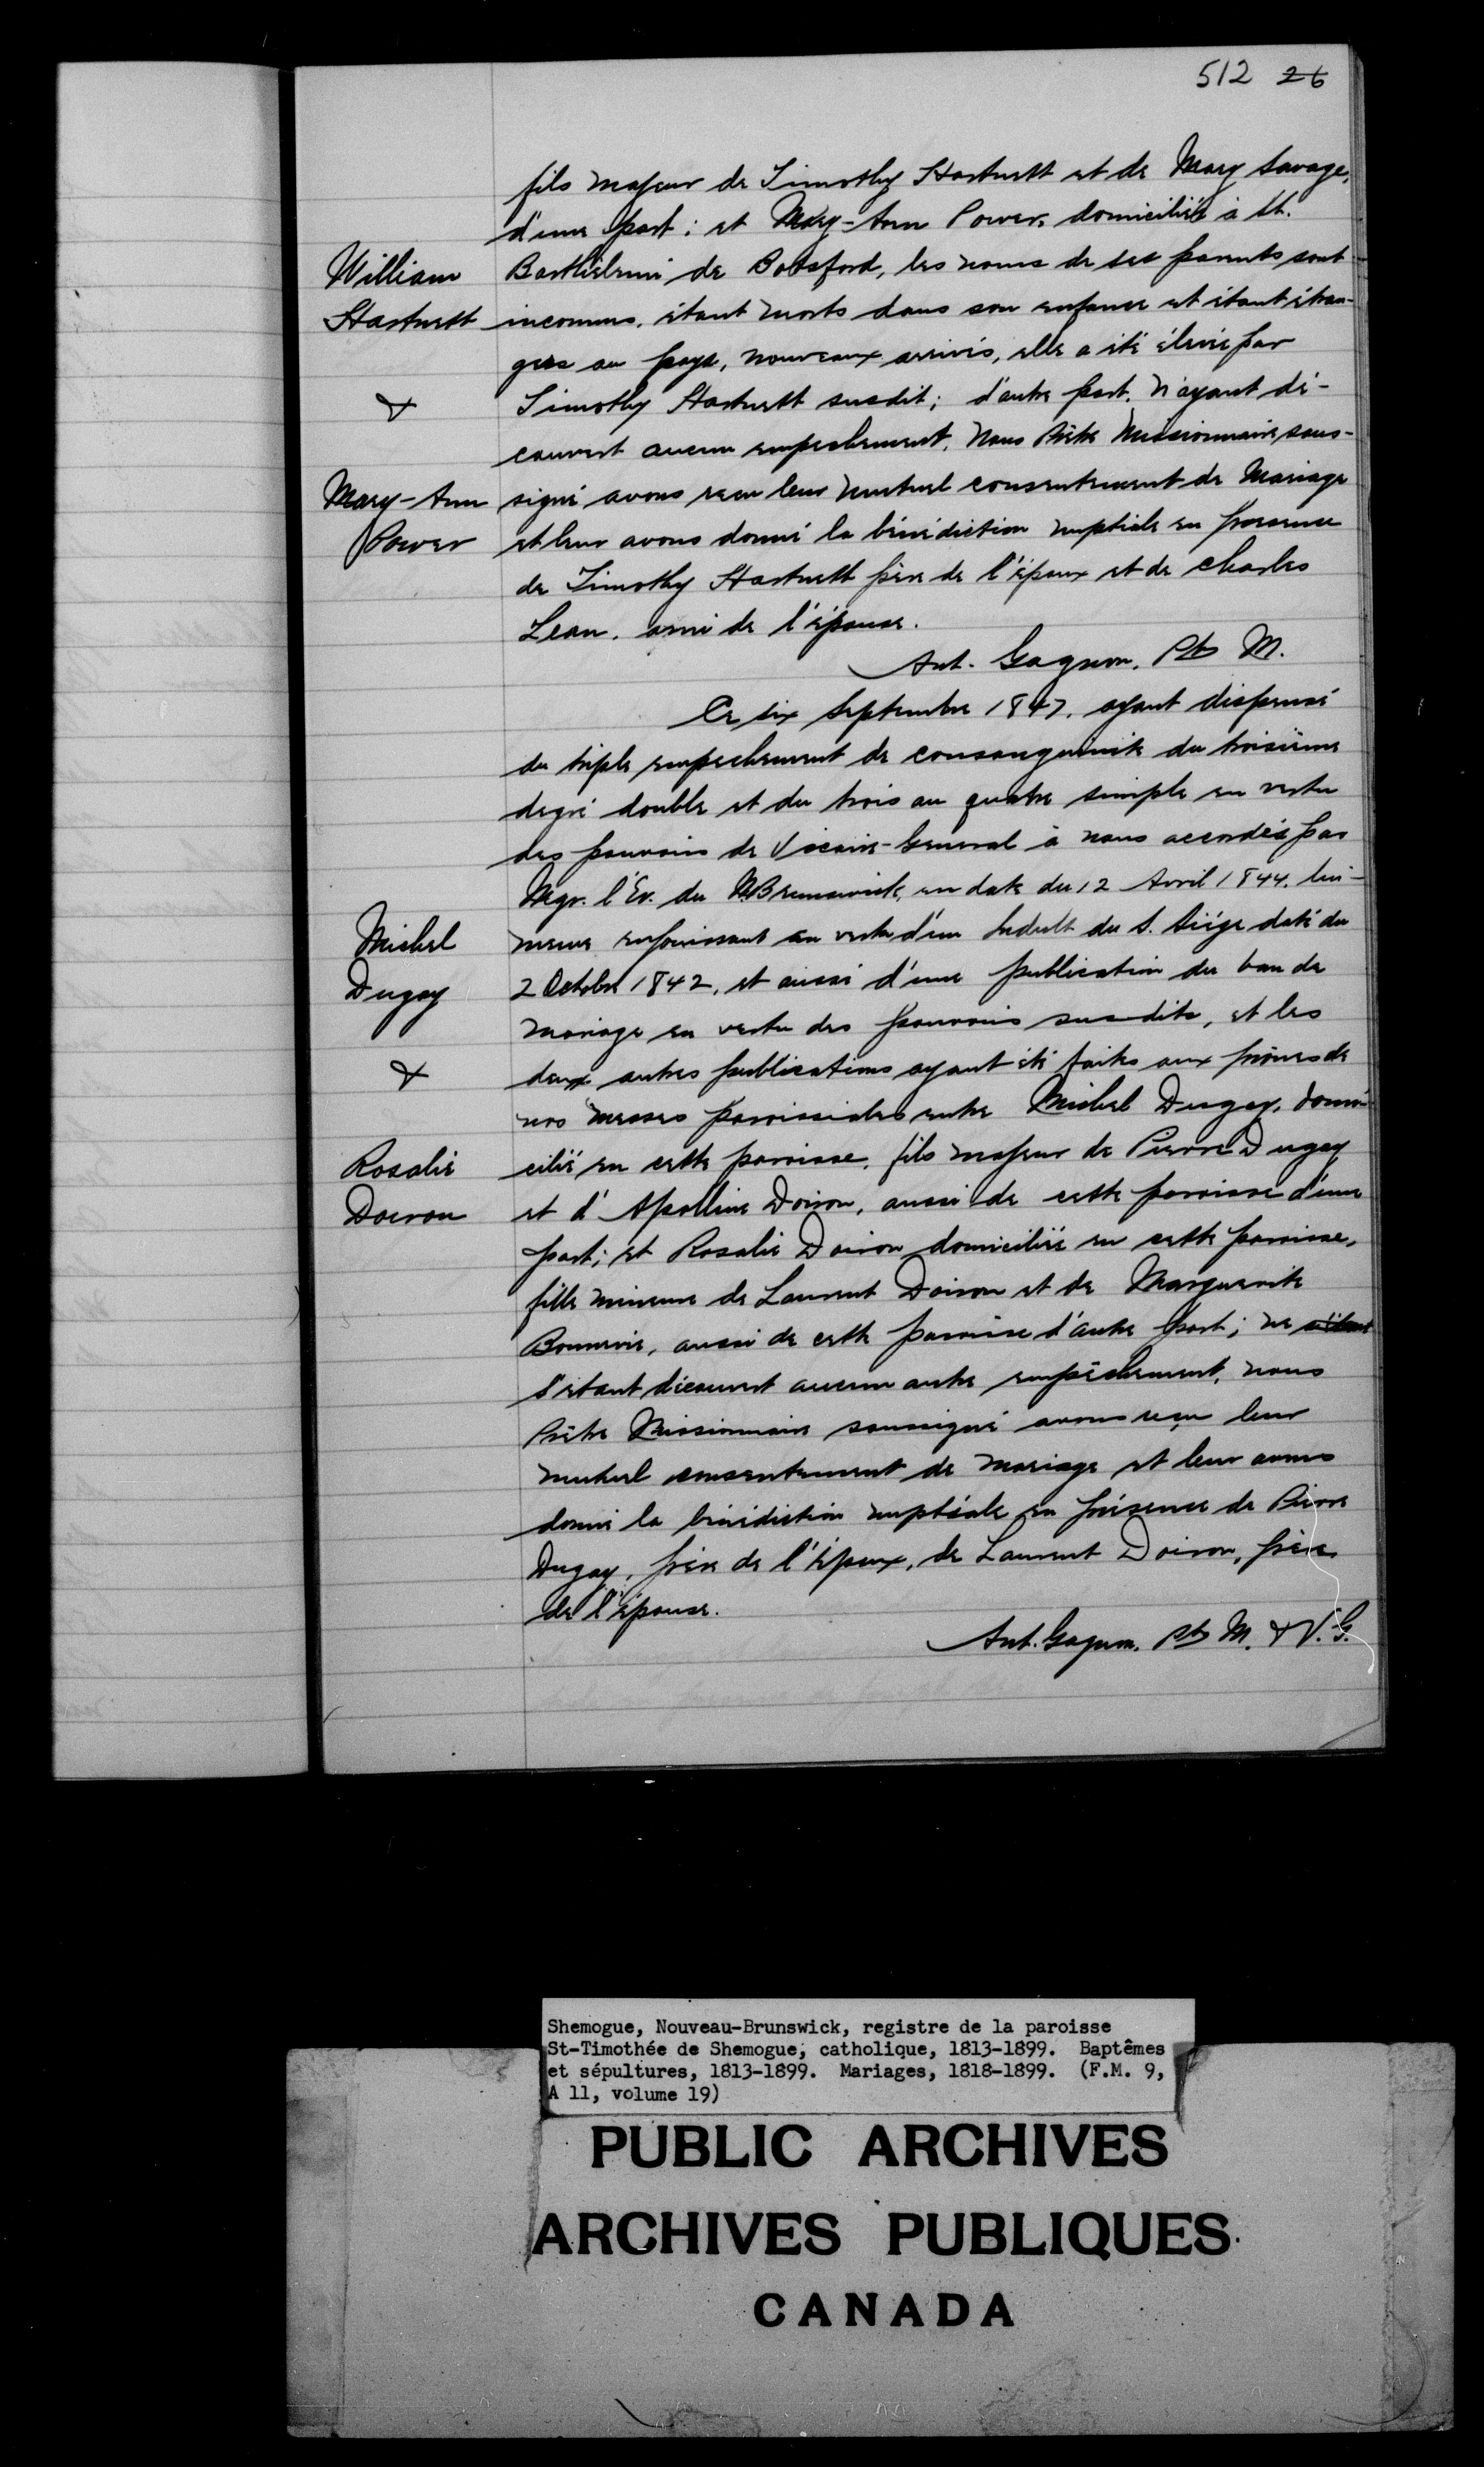 512 26
fils majeur de Timothy Hartnett et de Mary Savage,
d'une part; et Mary-Ann Power, domiciliée à St.
William
Barthélemi de Botsford, les noms de ses parents sont
Hartnett
inconnus, étant morts dans son enfance et étant étran-
gers au pays, nouveaux arrivés, elle a été élevée par
&
Timothy Hartnett susdit; d'autre part. N'ayant dé-
couvert aucun empechement, Nous Prêtre Missionnaire sous-
Mary-Ann
signé avons reçu leur mutuel consentement de Mariage
Power
et leur avons donné la bénédiction nuptiale en presence
de Timothy Hartnett père de l'époux et de Charles
Lean, ami de l'épouse.
Ant. Gagnon, Ptr M.
Ce six Septembre 1847, ayant dispensé
du triple empechement de consanguinité du troisième
degré double et du trois au quatre simple en vertu
des pouvoirs de Vicaire-General à nous accordés par
Mgr. l'Ev. du N.Brunswick, en date du 12 Avril 1844, lui-
Michel
meme en jouissant en vertu d'un Indult du S. Siége daté du
Dugay
2 Octobre 1842, et aussi d'une publication du ban de
mariage en vertu des pouvoirs susdits, et les
&
deux autres publications ayant été faites aux prônes de
nos messes paroissiales entre Michel Dugay, domi-
Rosalie
cilié en cette paroisse, fils majeur de Pierre Dugay
Doiron
et d'Apolline Doiron, aussi de cette paroisse d'une
part; et Rosalie Doiron domiciliée en cette paroisse,
fille mineure de Laurent Doiron et de Marguerite
Bonnevie, aussi de cette paroisse d'autre part; ne s'étant
s'étant découvert aucun autre empêchement, nous
Prêtre Missionnaire soussigné avons reçu leur
mutuel consentement de mariage et leur avons
donné la bénédiction nuptiale en présence de Pierre
Dugay, frère de l'époux, de Laurent Doiron, frère
de l'épouse.
Ant. Gagnon, Ptr M. & V.G.
Shemogue, Nouveau-Brunswick, registre de la paroisse
St-Timothée de Shemogue, catholique, 1813-1899. Baptêmes
et sépultures, 1813-1899. Mariages, 1818-1899. (F.M. 9,
A 11, volume 19)
PUBLIC ARCHIVES
ARCHIVES PUBLIQUES
CANADA